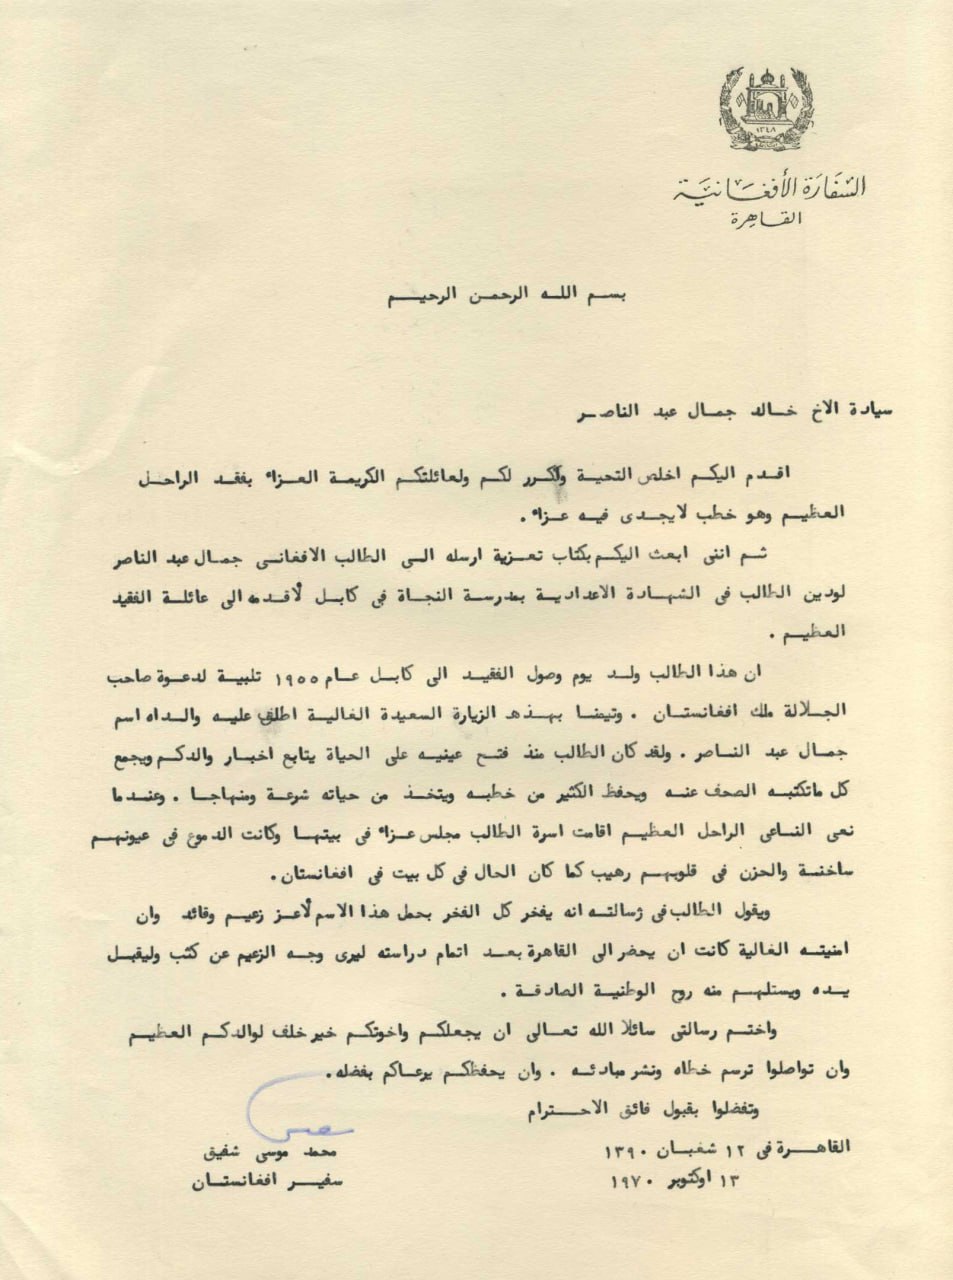 ١٣٤٨
السَّفَارَة الأَفغَـانيَّة
القـاهِرة
بسم الله الرحمن الرحيم
سيادة الاخ خالد جمال عبد الناصر
اقدم اليكم اخلص التحية واكرر لكم ولعائلتكم الكريمة العزاء بفقد الراحل
العظيم وهو خطب لايجدى فيه عزاء .
ثم اننى ابعث اليكم بكتاب تعزية ارسله الى الطالب الافغانى جمال عبد الناصر
لودين الطالب فى الشهادة الاعدادية بمدرسة النجاة فى كابل لأقدمه الى عائلة الفقيد
العظيم .
ان هذا الطالب ولد يوم وصول الفقيد الى كابل عام ١٩٥٥ تلبية لدعوة صاحب
الجلالة ملك افغانستان . وتيمنا بهذه الزيارة السعيدة الغالية اطلق عليه والداه اسم
جمال عبد الناصر . ولقد كان الطالب منذ فتح عينيه على الحياة يتابع اخبار والدكم ويجمع
كل ماتكتبه الصحف عنه ويحفظ الكثير من خطبه ويتخذ من حياته شرعة ومنهاجا . وعندما
نعى الناعى الراحل العظيم اقامت اسرة الطالب مجلس عزاء فى بيتها وكانت الدموع فى عيونهم
ساخنة والحزن فى قلوبهم رهيب كما كان الحال فى كل بيت فى افغانستان .
ويقول الطالب فى رسالته انه يفخر كل الفخر بحمل هذا الاسم لأعز زعيم وقائد وان
امنيته الغالية كانت ان يحضر الى القاهرة بعد اتمام دراسته ليرى وجه الزعيم عن كثب وليقبل
يده ويستلهم منه روح الوطنية الصادقة .
واختم رسالتى سائلا الله تعالى ان يجعلكم واخوتكم خير خلف لوالدكم العظيم
وان تواصلوا ترسم خطاه ونشر مبادئه . وان يحفظكم يرعاكم بفضله .
وتفضلوا بقبول فائق الاحترام
القاهرة فى ١٢ شعبان ١٣٩٠
محمد موسى شفيق
١٣ اوكتوبر ١٩٧٠
سفير افغانستان